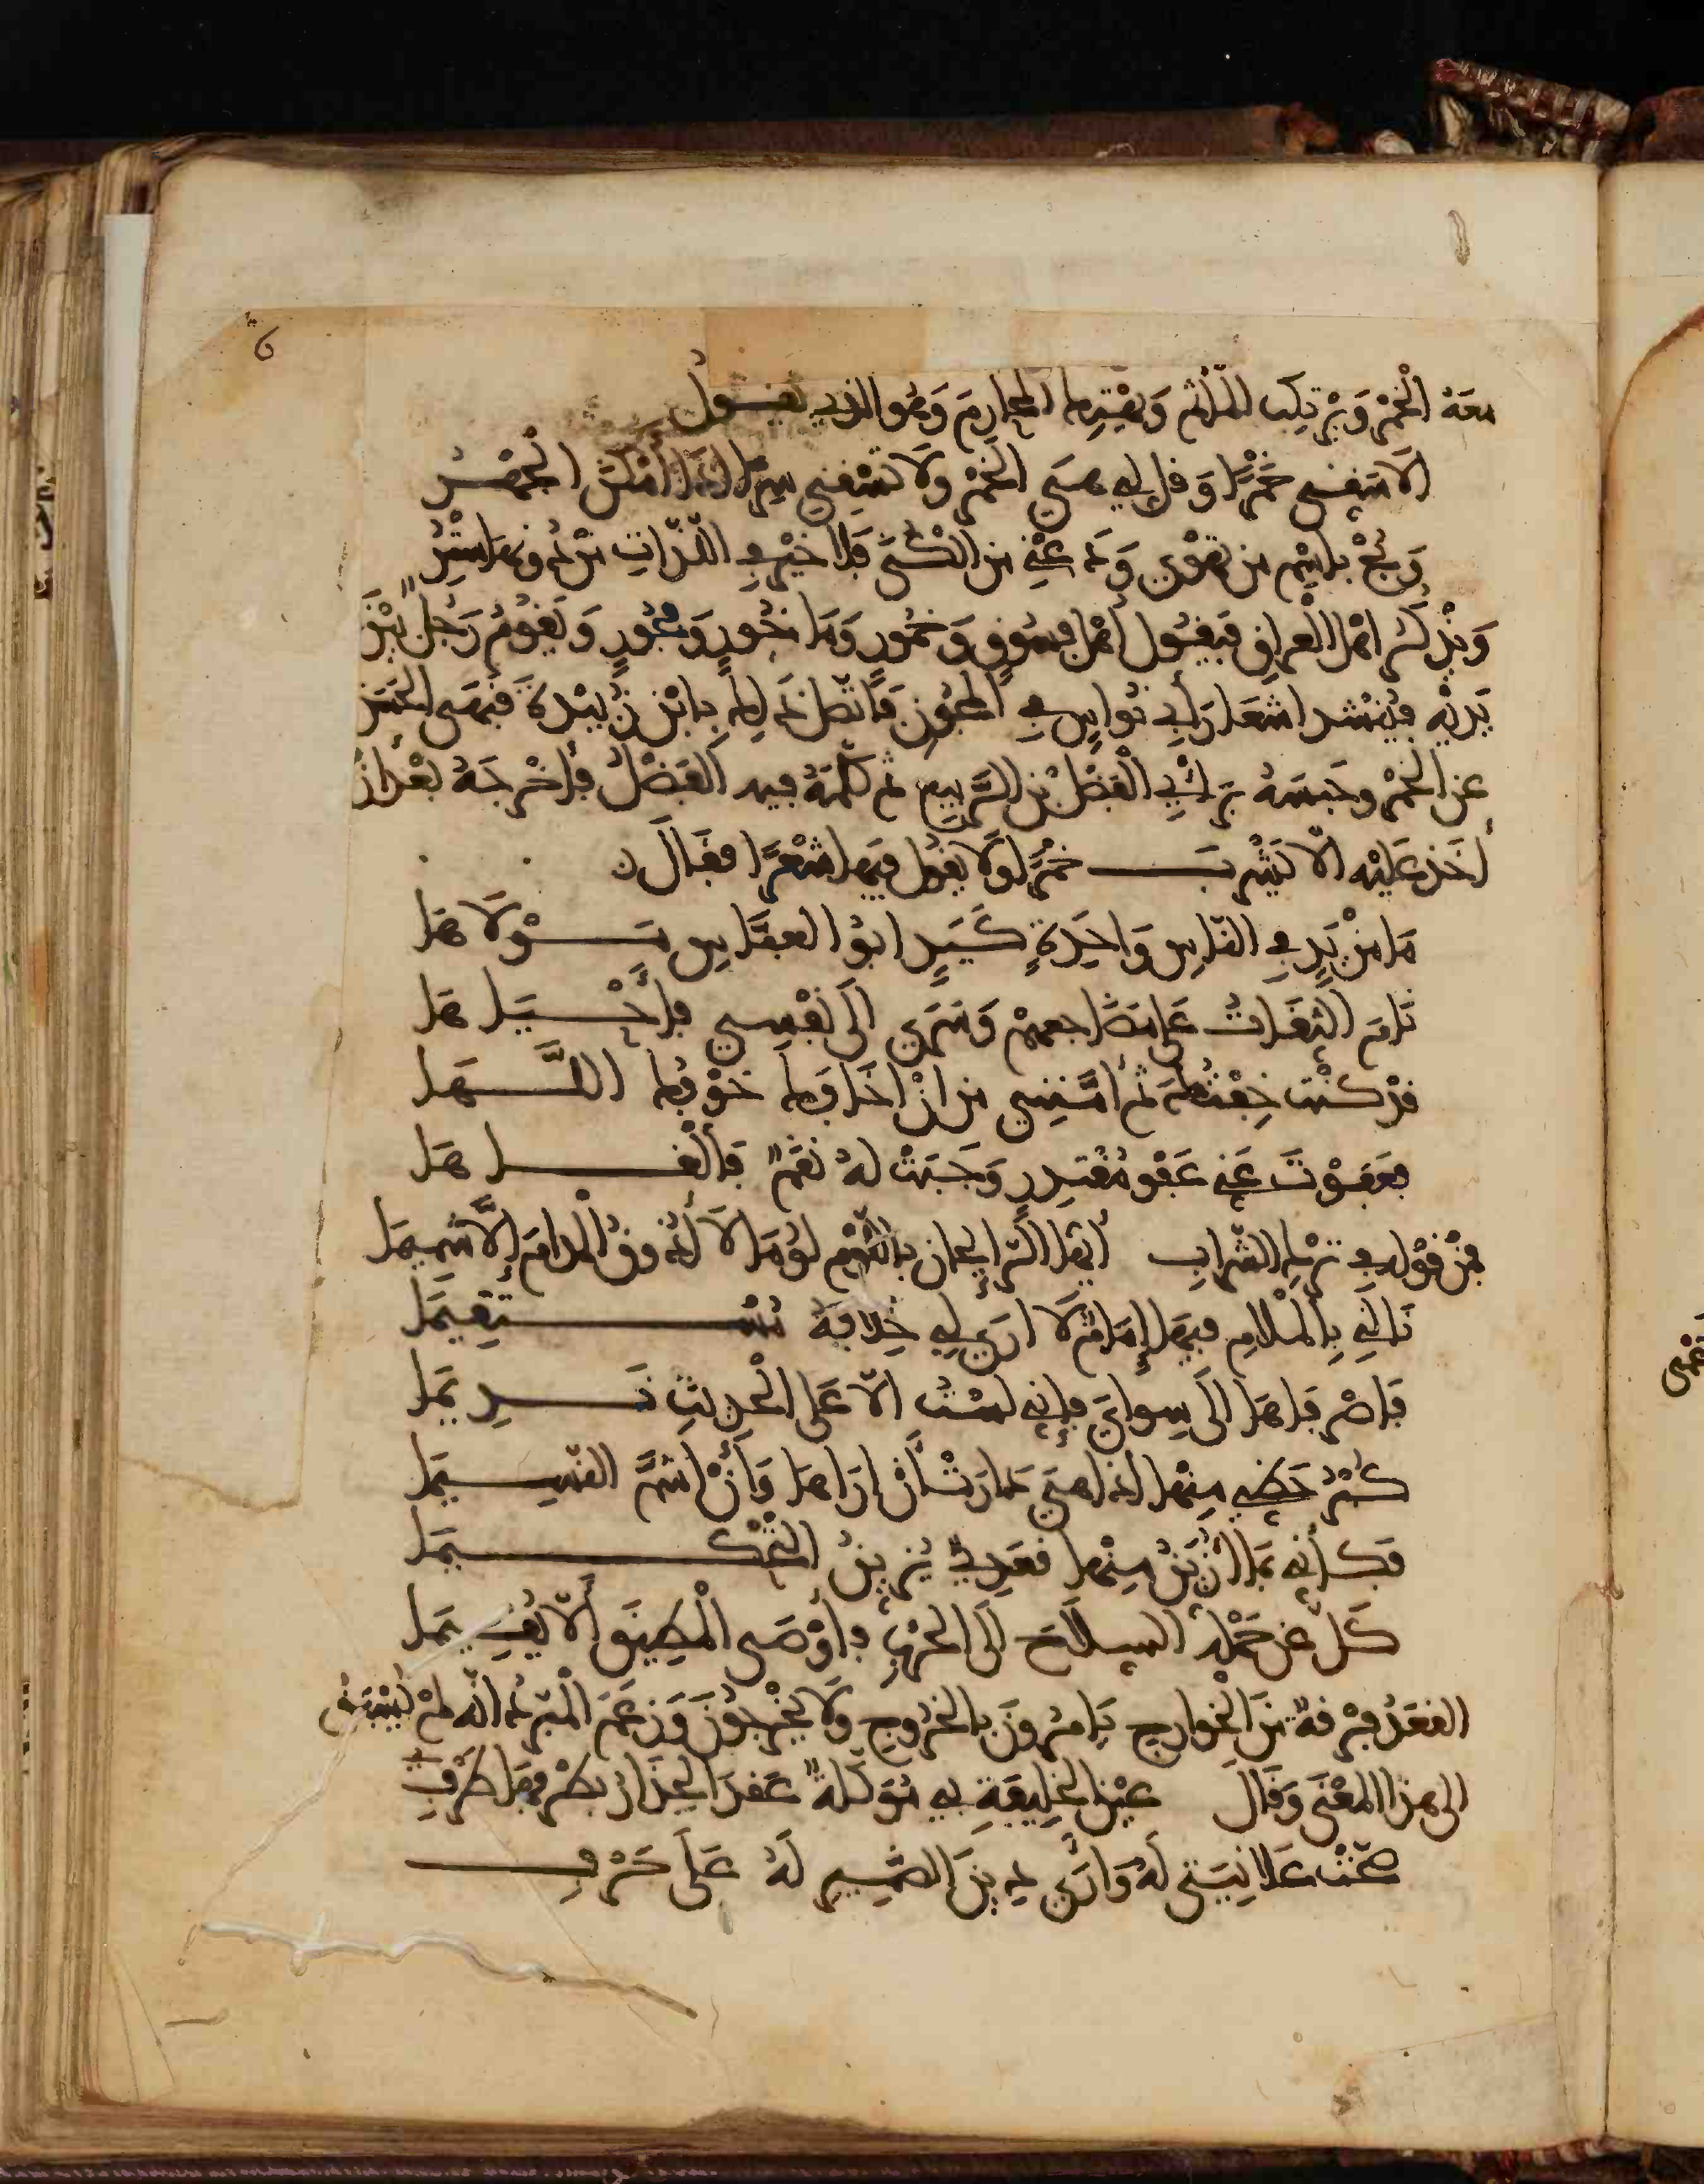 معه الخَمْرَ وَيَرْتكِب المآثم وَيَهْتِك المحارِمَ وَهُوَ الذي يقــول
الا سَقني خَمْرًا وَقل لي هيَ الخمْر ولا تسْقِني سِرًّا اذَا أمْكَنَ الجَهْــرُ
وَبُحْ باسْمِ من تهوى وَدَعْنِي من الكُنَى فَلا خيْرَ في اللذّاتِ منْ دُونِهَا سِتْرُ
وَيذْكُر اهْل العراق فَيَقُول أهْل فسُوقٍ وَخمُور وَمَاخُور وَفجُورٍ وَيَقومُ رَجُل بَيْنَ
يَدَيْه فيُنْشد اشعَارَ أبي نُوَاسٍ في المجُون فَاتّصَل ذَلِك بِابْن زُبَيْدَة فنهَى الحَسَن
عن الخمْر وحَبسَهُ ابْن أبي الفَضْل بْن الرّبيع ثم كلّمَهُ فيه الفَضْلُ فأخْرجَهُ بَعْدَ أنْ
أخَذ عَليْه الاّ يَشْرَبَــــ خمْرًا وَلا يقول فيهَا شعْرًا فقَالَ
مَا مِنْ يَدٍ في النّاسِ وَاحِدَةٍ كَيَدٍ ابُو العبَّاسِ مَـــوْلاهَا
نَامَ الثِقَاتُ عَلى مَضَاجِعهمْ وَسَرَى الَى نَفْسِي فأحْــيَاهَا
قدْ كنْت خِفْتُكَ ثمَّ أمَّنَنِي من انْ اخَافَك خَوْفُك اللَّـــهَا
فعَفَوْتَ عَنِّي عَفْوَ مُقْتَدِرٍ وَجَبَتْ لهُ نقَمٌ فألْغـــاهَا
فمنْ قوْله في تَرْك الشّراب أيّها الرَّائِحان باللّوْمِ لُومَا لا أذُوقُ المدامَ إلاَّ شَمِيمَا
نَالَنِي بِالمَلامِ فيهَا إِمَامٌ لا ارَى لِي خِلافهُ مُسْـــتَقِيمَا
فَاصْرِفَاهَا الَى سِوَايَ فإنِّي لسْتُ الاّ عَلى الحَدِيثِ نَـــدِيمَا
كُبْرُ حَظِّي مِنْهَا اذا هيَ دَارَتْ أنْ ارَاهَا وَأنْ اشَمَّ النّسِـــيمَا
فَكَأنّي بمَا أُزَيِّنُ مِنْهَا قَعَدِيٌّ يُزَيِّنُ التَحْكِـــيمَا
كَلَّ عَن حَمْلِهِ السِلاحَ الَى الحَرْبِ فأوْصَى المُطِيقَ ألاّ يُقِـــيمَا
القعَدُ فِرْقَةٌ مِنَ الخَوَارج يَامُرُونَ بالخرُوجِ وَلا يَخْرجُونَ وَزعَمَ المبَرّدُ انّه لمْ يُسْبَقْ
الى هذا المعْنَى وَقَالَ عيْن الخَلِيفَةِ بي مُوَكَّلَةٌ عَقدَ الحِذارُ بِطرْفِهَا طَرْفِي
صَحّتْ عَلانِيَتي لَهُ وَأرَى دِينَ الضمِيرِ لَهُ عَلَى حَرْفِـــ